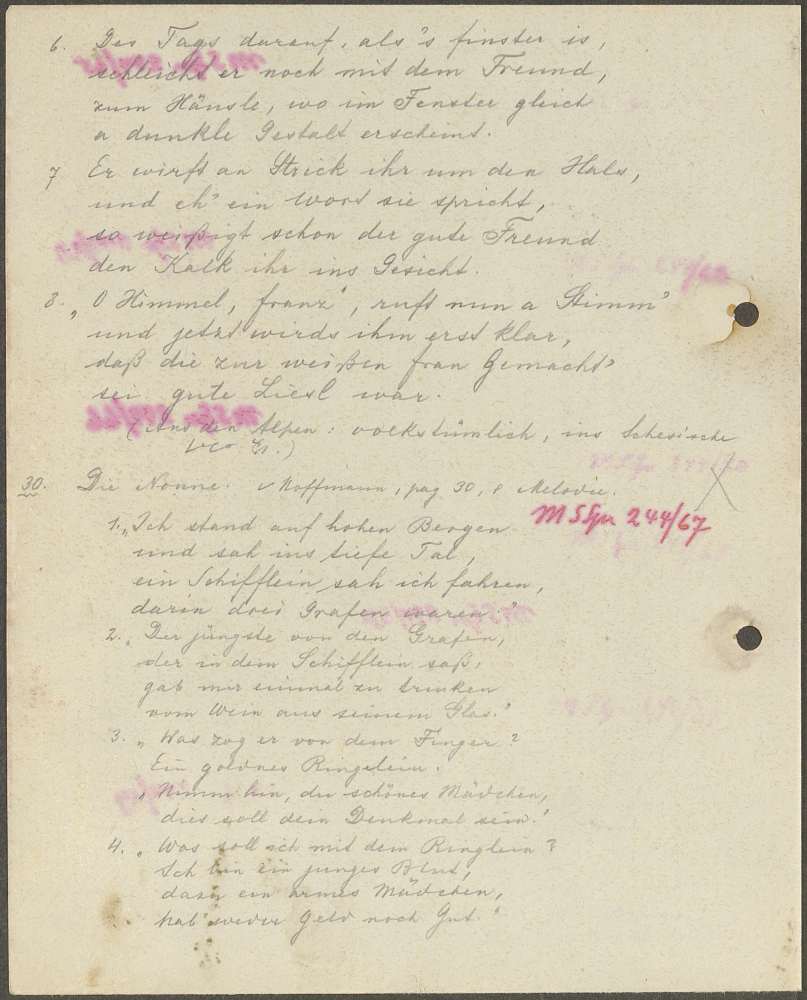 6. Des Tags darauf, als's finster is,
schleicht er noch mit dem Freund,
zum Häusle, wo im Fenster gleich
a dunkle Gestalt erscheint.
7 Er wirft an Strick ihr um den Hals,
und eh' ein Wort sie spricht,
so weißigt schon der gute Freund
den Kalk ihr ins Gesicht.
8. "O Himmel, franz", ruft nun a Stimm'
und jetzt wirds ihm erst klar,
daß die zur weißen frau Gemacht'
sei gute Liesl war.
(Aus den Alpen: volkstümlich, ins Schesische
30. Die Nonne. Hoffmann, pag 30, Melodie.
M SSpr 244/67
1. "Ich stand auf hohen Bergen
und sah ins tiefe Tal,
ein Schifflein sah ich fahren,
darin drei Grafen waren."
2. "Der jüngste von den Grafen,
der in dem Schifflein saß,
gab mir einmal zu trinken
vom Wein aus seinem Glas."
3. "Was zog er von dem Finger?
Ein goldnes Ringelein.
"Nimm hin, du schönes Mädchen,
dies soll dein Denkmal sein."
4. "Was soll ich mit dem Ringlein?
Ich bin ein junges Blut,
dazu ein armes Mädchen,
hab weder Geld noch Gut."